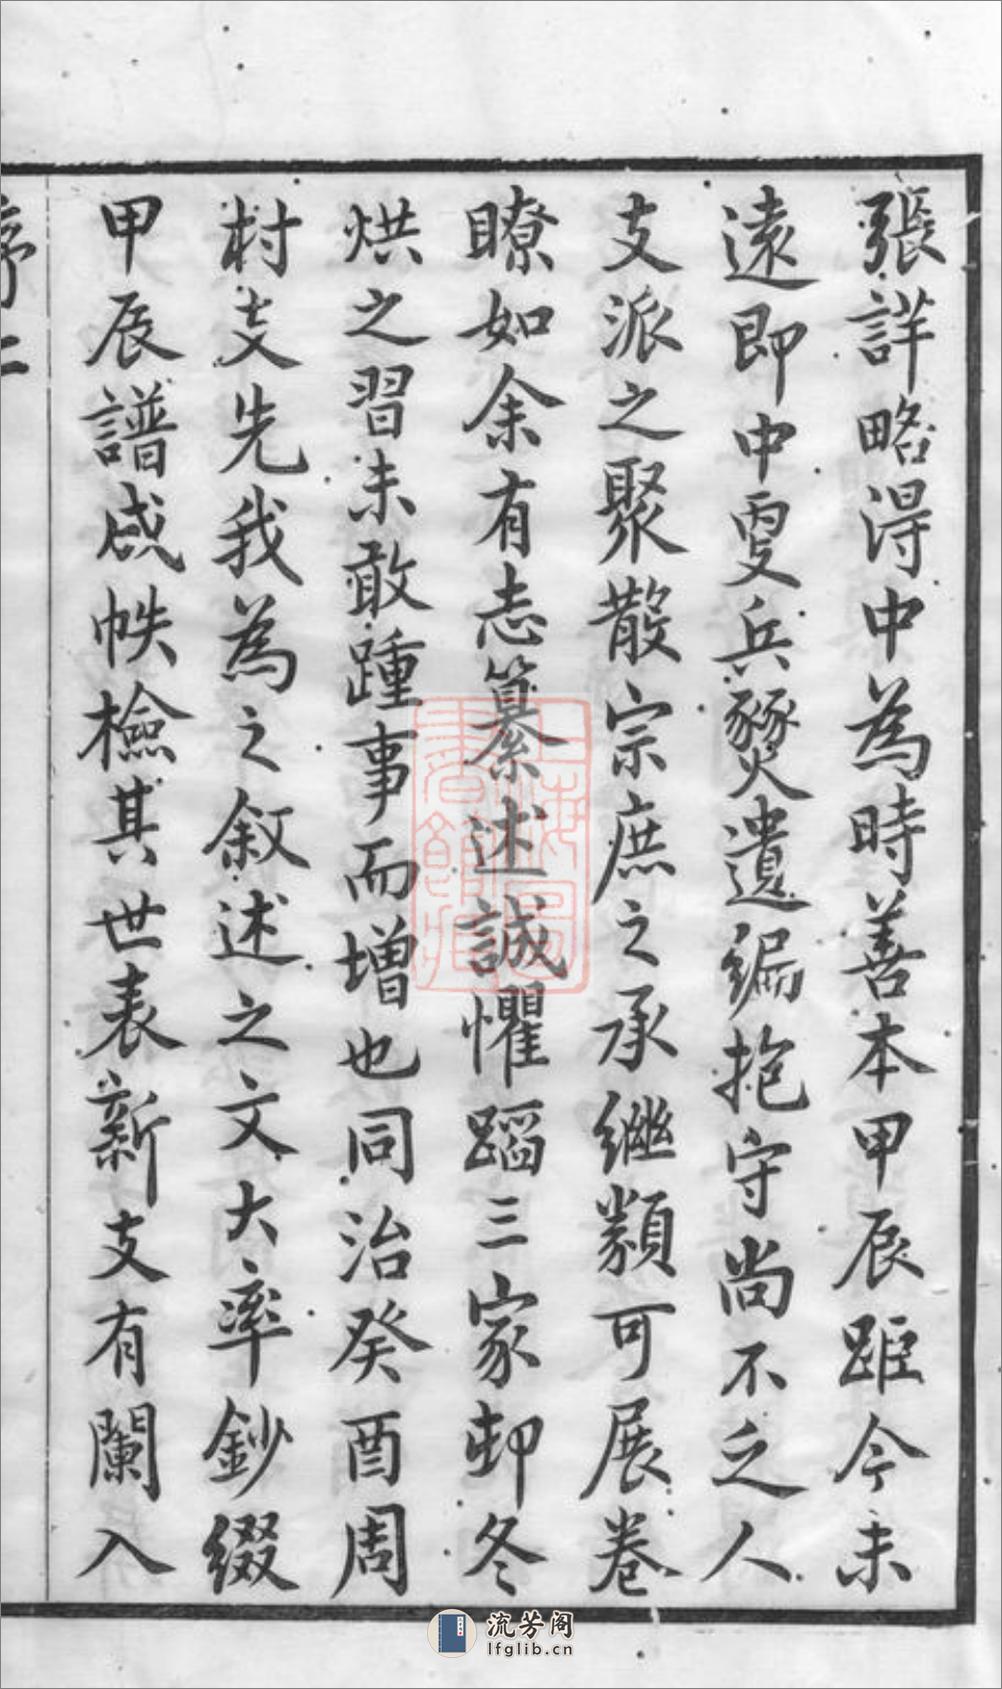 張詳略淂中為時善本甲辰距今未
遠即中更兵燹遺編抱守尚不乏人
支派之聚散宗庶之承繼纇可展卷
瞭如余有志纂述誠懼蹈三家邨冬
烘之習未敢踵事而增也同治癸酉周
村支先我為之叙述之文大率鈔綴
甲辰譜成帙檢其世表新支有闌入
序二
上海圖書館藏
流芳阁
lfglib.cn